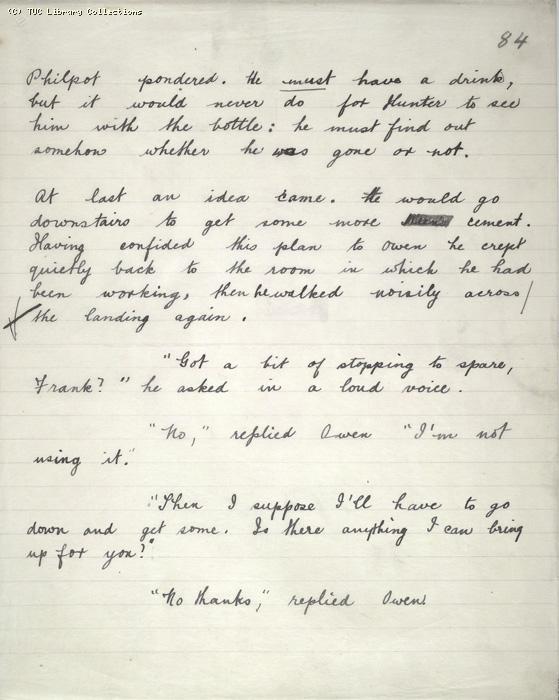 (C) TUC Library Collections
84
Philpot pondered. He must have a drink,
but it would never do for Hunter to see
him with the bottle: he must find out
somehow whether he was gone or not.
At last an idea came. He would go
downstairs to get some more cement.
Having confided this plan to Owen he crept
quietly back to the room in which he had
been working, then he walked noisily across
the landing again.
"Got a bit of stopping to spare,
Frank?" he asked in a loud voice.
"No," replied Owen "I'm not
using it."
"Then I suppose I'll have to go
down and get some. Is there anything I can bring
up for you?"
"No thanks," replied Owen.